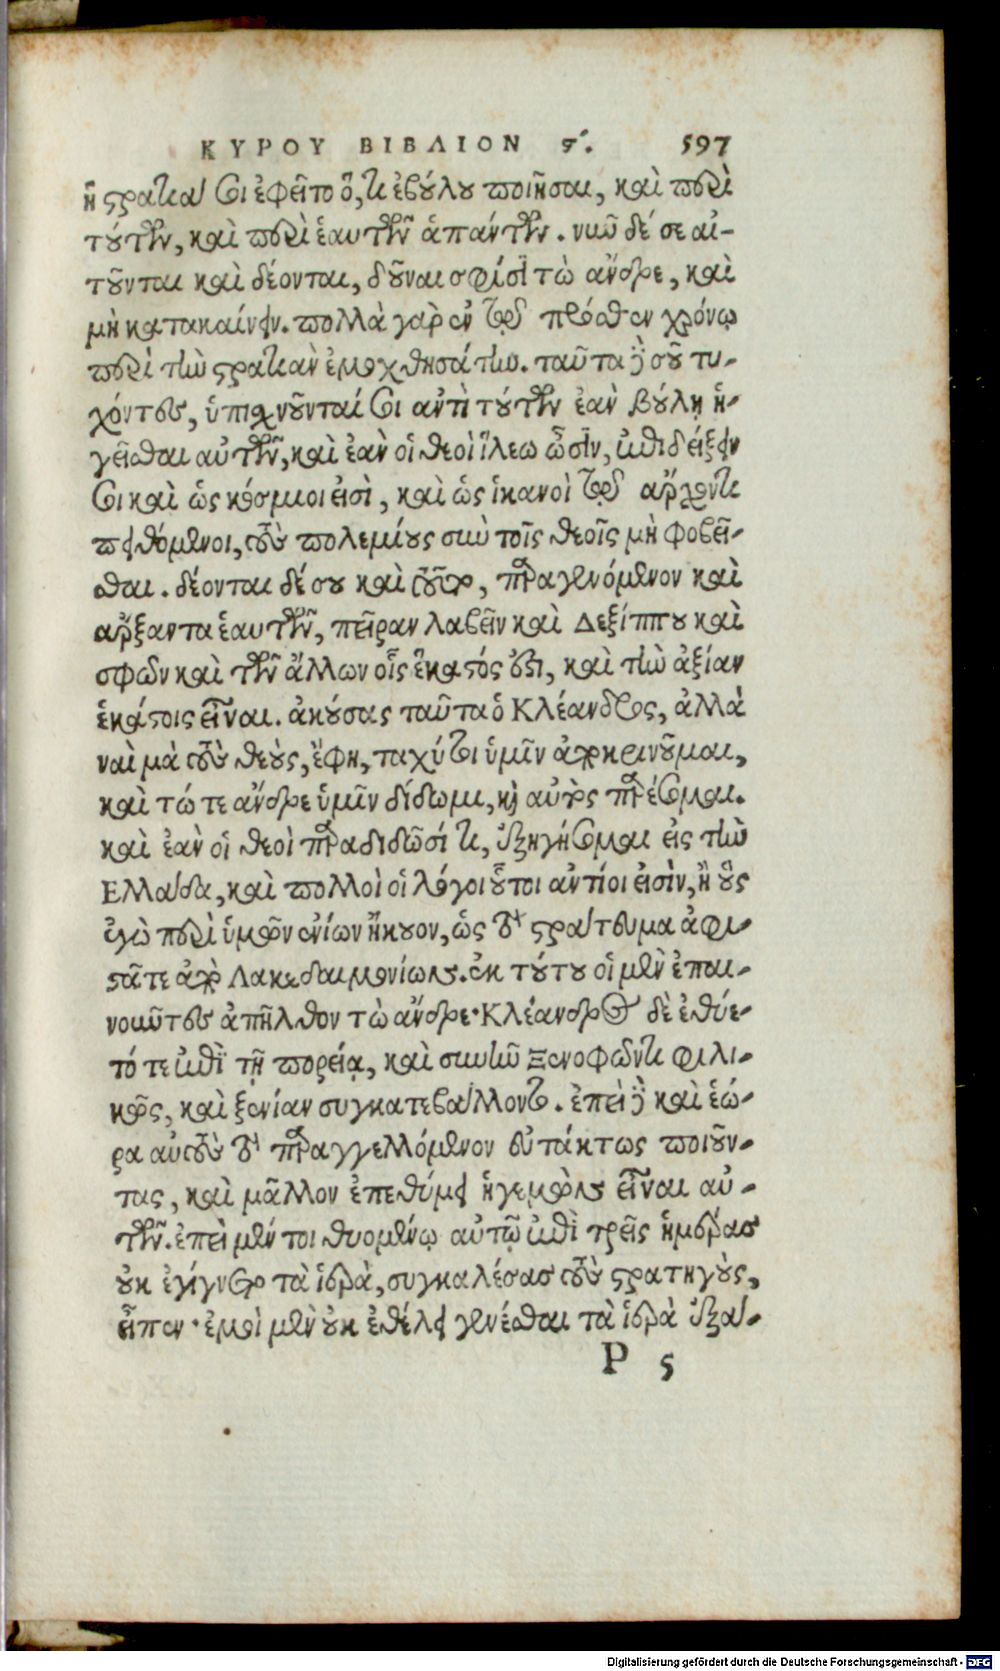 ΚΥΡΟΥ ΒΙΒΛΙΟΝ ϛʹ. 597
ἡ στρατιά σοι ἐφεῖτο ὅ,τι ἐβούλου ποιῆσαι, καὶ περὶ
τούτων, καὶ περὶ ἑαυτῶν ἁπάντων. νῦν δέ σε αἰ-
τοῦνται καὶ δέονται, δοῦναι σφίσι τὼ ἄνδρε, καὶ
μὴ κατακαίνειν. πολλὰ γὰρ ἐν τῷ πρόσθεν χρόνῳ
περὶ τὴν στρατιὰν ἐμοχθησάτην. ταῦτα δὲ σοῦ τυ-
χόντες, ὑπισχνοῦνταί σοι ἀντὶ τούτων ἐὰν βούλῃ ἡ-
γεῖσθαι αὐτῶν, καὶ ἐὰν οἱ θεοὶ ἵλεῳ ὦσιν, ἐπιδείξειν
σοι καὶ ὡς κόσμιοι εἰσὶ, καὶ ὡς ἱκανοὶ τῷ ἄρχοντι
πειθόμενοι, τοὺς πολεμίους σὺν τοῖς θεοῖς μὴ φοβεῖ-
σθαι. δέονται δέ σου καὶ τοῦτο, παραγενόμενον καὶ
ἄρξαντα ἑαυτῶν, πεῖραν λαβεῖν καὶ Δεξίππου καὶ
σφῶν καὶ τῶν ἄλλων οἷος ἕκαστός ἐστι, καὶ τὴν ἀξίαν
ἑκάστοις εἶναι. ἀκούσας ταῦτα ὁ Κλέανδρος, ἀλλὰ
ναὶ μὰ τοὺς θεοὺς, ἔφη, ταχύ τοι ὑμῖν ἀποκρινοῦμαι,
καὶ τώ τε ἄνδρε ὑμῖν δίδωμι, καὶ αὐτὸς παρέσομαι.
καὶ ἐὰν οἱ θεοὶ παραδιδῶσί τι, ἐξηγήσομαι εἰς τὴν
Ελλάδα, καὶ πολλοὶ οἱ λόγοι οὗτοι ἀντίοι εἰσὶν, ἢ οὓς
ἐγὼ περὶ ὑμῶν ἐνίων ἤκουον, ὡς τὸ στράτευμα ἀφι-
στᾶτε ἀπὸ Λακεδαιμονίων. ἐκ τούτου οἱ μὲν ἐπαι-
νοῦντες ἀπῆλθον τὼ ἄνδρε· Κλέανδρος δὲ ἐθύε-
τό τε ἐπὶ τῇ πορείᾳ, καὶ συνῆν Ξενοφῶντι φιλι-
κῶς, καὶ ξενίαν συγκατεβάλλοντο. ἐπεὶ δὲ καὶ ἑώ-
ρα αὐτοὺς τὸ παραγγελλόμενον εὐτάκτως ποιοῦν-
τας, καὶ μᾶλλον ἐπεθύμει ἡγεμὼν εἶναι αὐ-
τῶν. ἐπεὶ μέν τοι θυομένῳ αὐτῷ ἐπὶ τρεῖς ἡμέρας
οὐκ ἐγίγνετο τὰ ἱερὰ, συγκαλέσας τοὺς στρατηγοὺς,
εἶπεν· ἐμοὶ μὲν οὐκ ἐθέλει γενέσθαι τὰ ἱερὰ ἐξά-
P 5
Digitalisierung gefördert durch die Deutsche Forschungsgemeinschaft - DFG